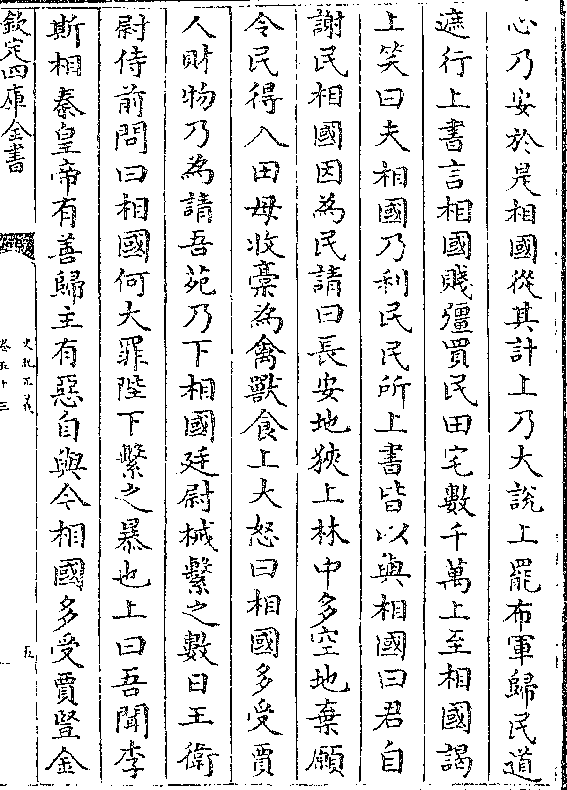 心乃安於是相國從其計上乃大說上罷布軍歸民道
遮行上書言相國賤彊買民田宅數千萬上至相國謁
上笑曰夫相國乃利民民所上書皆以與相國曰君自
謝民相國因為民請曰長安地狹上林中多空地棄願
令民得入田毋收藁為禽獸食上大怒曰相國多受賈
人財物乃為請吾苑乃下相國廷尉械繫之數日王衛
尉侍前問曰相國何大罪陛下繫之暴也上曰吾聞李
斯相秦皇帝有善歸主有惡自與今相國多受賈豎金
欽定四庫全書
史記正義
卷五十三
五